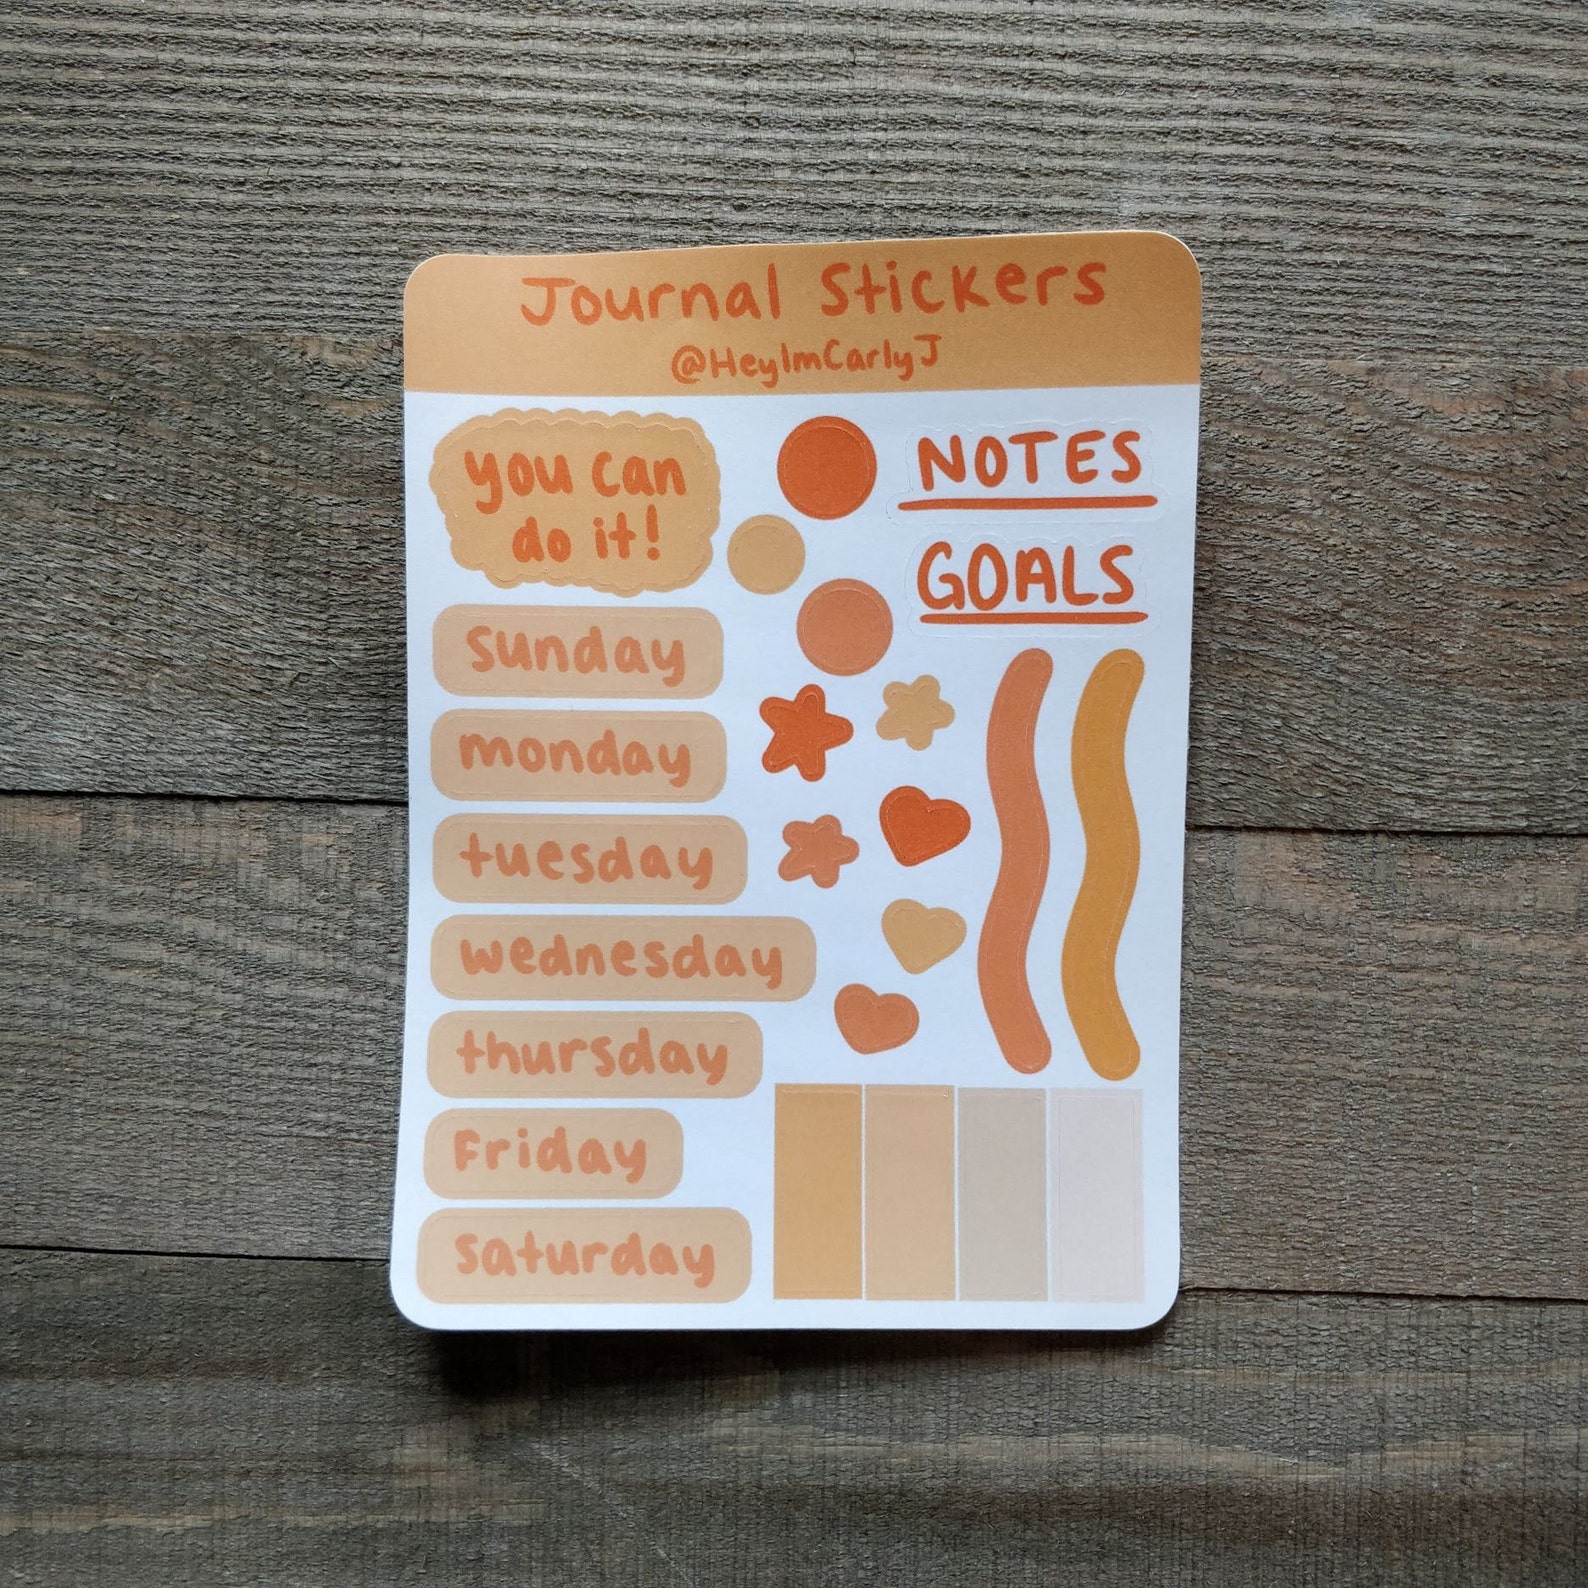 Journal Stickers
@HeyImCarlyJ
you can
do it!
NOTES
GOALS
sunday
monday
tuesday
wednesday
thursday
Friday
saturday